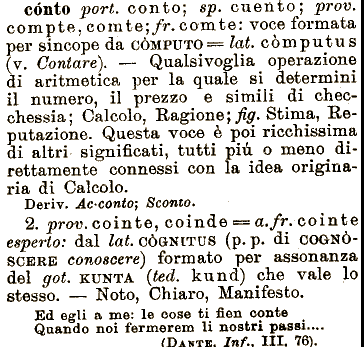 cónto port. conto; sp. cuento; prov.
compte, comte; fr. comte: voce formata
per sincope da CÒMPUTO = lat. còmputus
(v. Contare). — Qualsivoglia operazione
di aritmetica per la quale si determini
il numero, il prezzo e simili di chec-
chessia; Calcolo, Ragione; fig. Stima, Re-
putazione. Questa voce è poi ricchissima
di altri significati, tutti piú o meno di-
rettamente connessi con la idea origina-
ria di Calcolo.
Deriv. Ac-conto; Sconto.
2. prov. cointe, coinde = a. fr. cointe
esperto: dal lat. CÒGNITUS (p. p. di COGNÒ-
SCERE conoscere) formato per assonanza
del got. KUNTA (ted. kund) che vale lo
stesso. — Noto, Chiaro, Manifesto.
Ed egli a me: le cose ti fien conte
Quando noi fermerem li nostri passi....
(DANTE. Inf., III, 76).